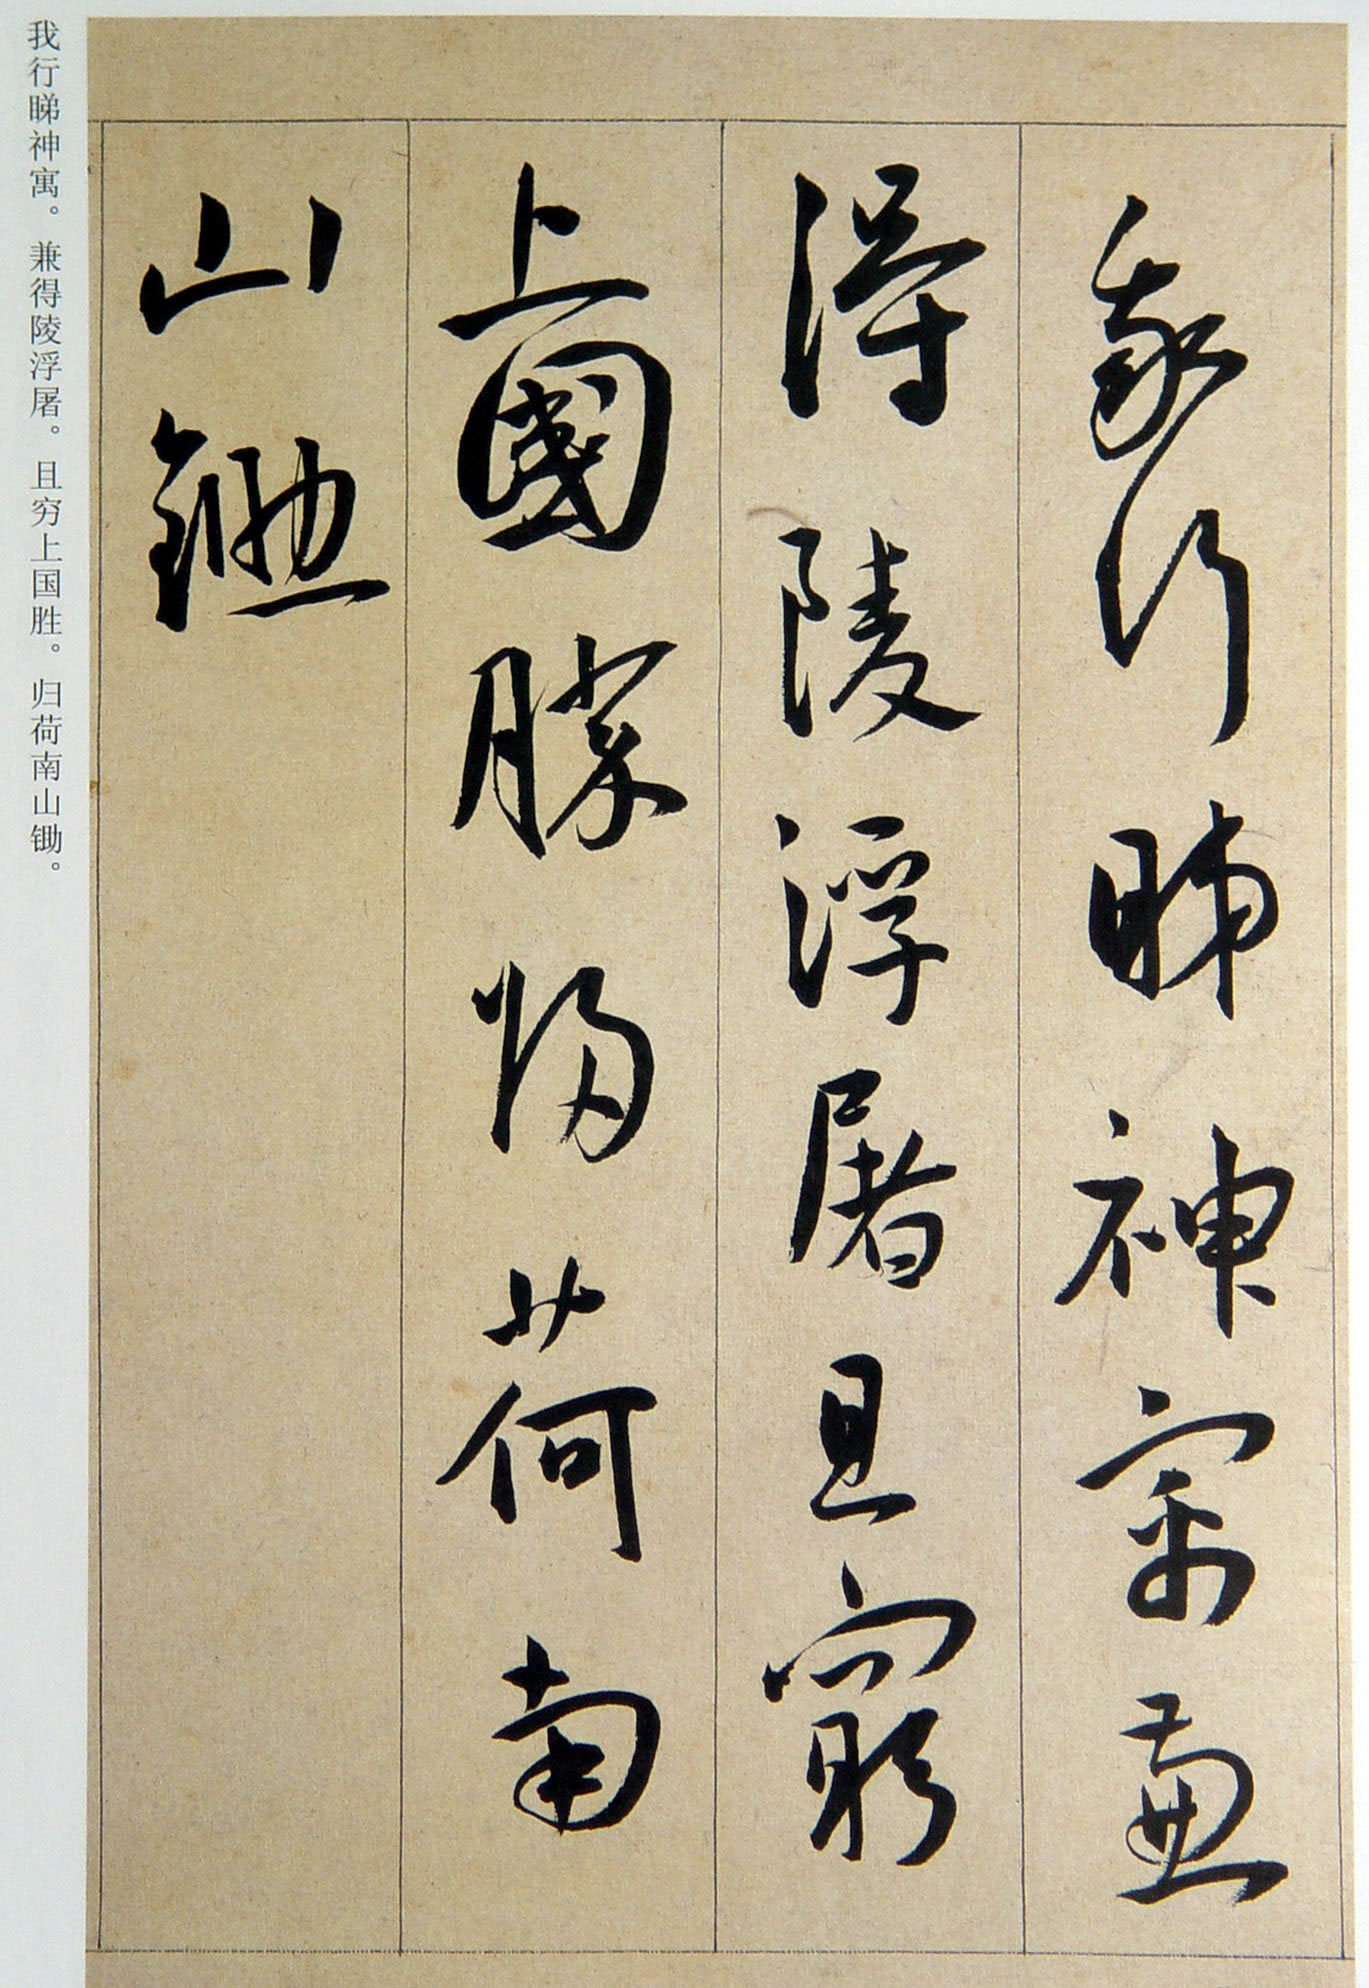 我行睇神寓兼
得陵浮屠且窮
上國勝歸荷南
山鋤
我行睇神寓。兼得陵浮屠。且穷上国胜。归荷南山锄。